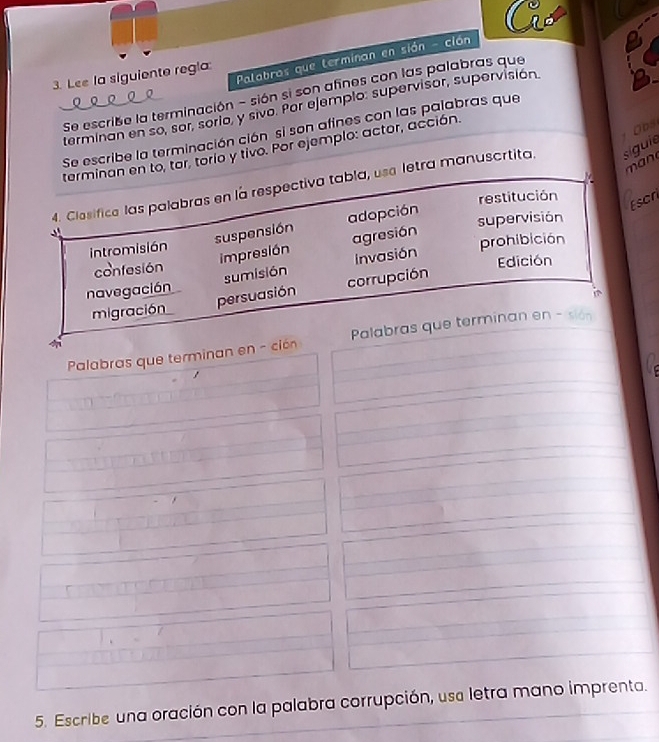 3. Lee la siguiente regla:
Palabras que terminan en sión - ción
Se escribe la terminación - sión si son afines con las palabras que
terminan en so, sor, sorio, y sivo. Por ejemplo: supervisor, supervisión.
Se escribe la terminación ción si son afines con las palabras que
terminan en to, tor, torio y tivo. Por ejemplo: actor, acción.
4. Clasifica las palabras en la respectiva tabla, usa letra manuscrtita.
intromisión suspensión adopción restitución
confesión impresión agresión supervisión
navegación sumisión invasión prohibición
migración persuasión corrupción Edición
Palabras que terminan en - ción
Palabras que terminan en - sión
5. Escribe una oración con la palabra corrupción, usa letra mano imprenta.
siguie
Escri